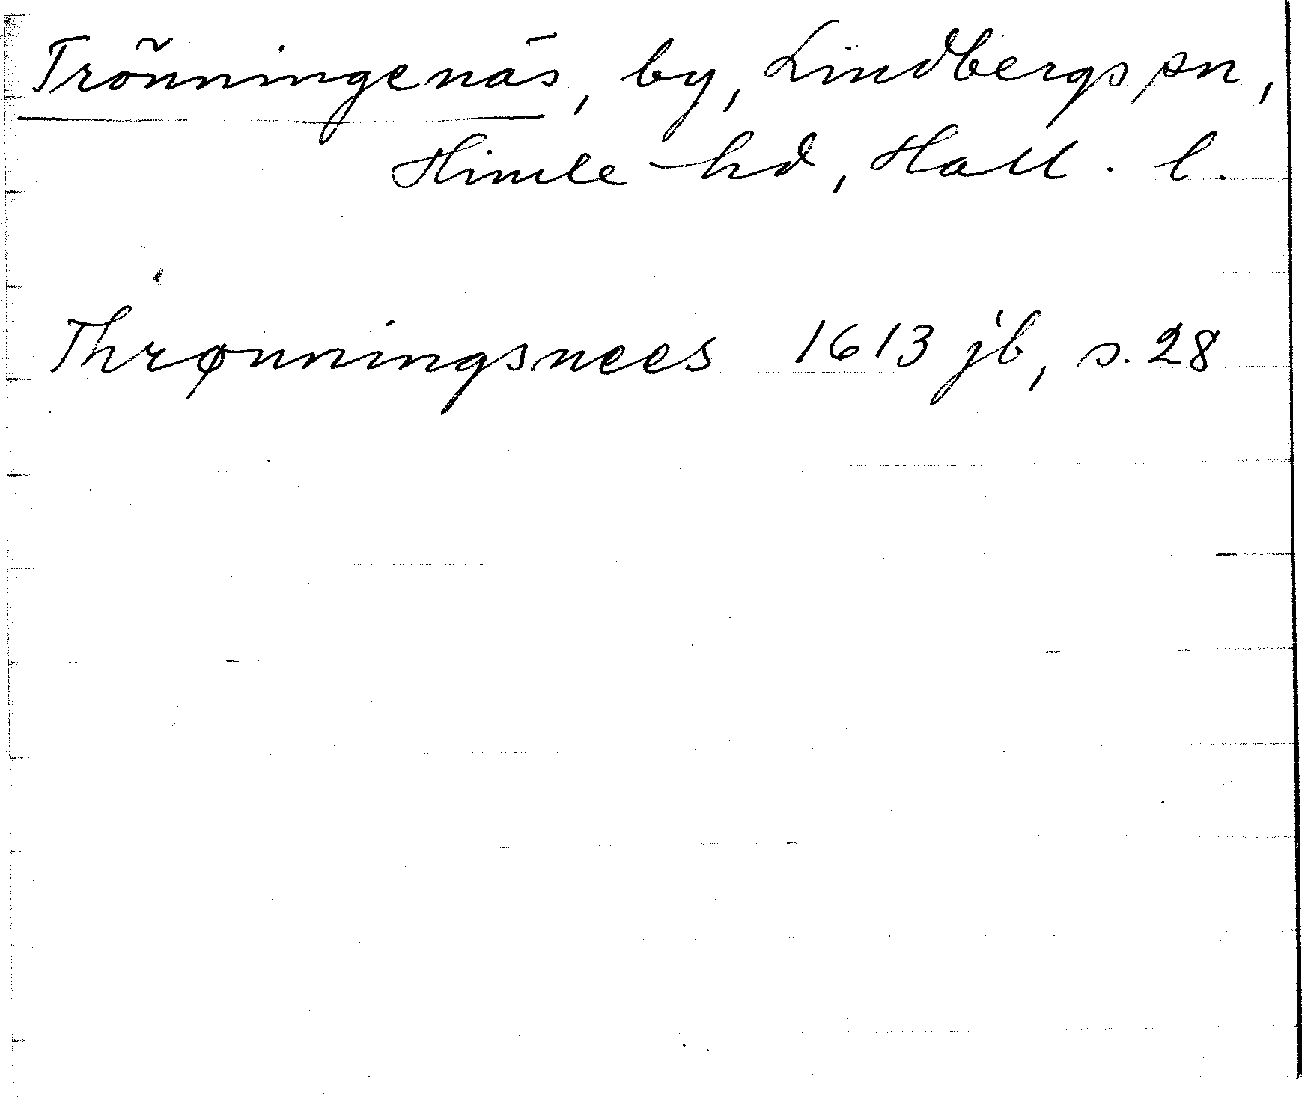 Trönningenäs, by, Lindbergs sn,
Himle hd, Hall. l.
Thrønningsnees 1613 jb, s. 28